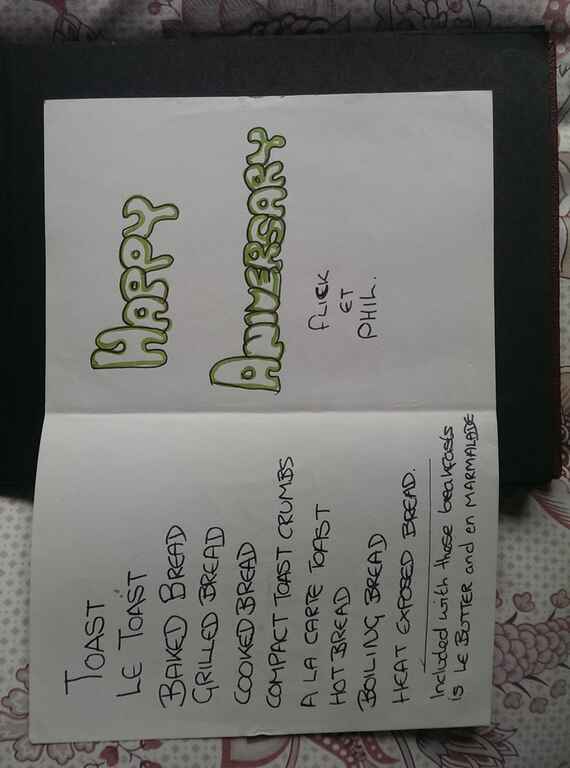 TOAST
LE TOAST
BAKED BREAD
GRILLED BREAD
COOKED BREAD
COMPACT TOAST CRUMBS
A LA CARTE TOAST
HOT BREAD
BOILING BREAD
HEAT EXPOSED BREAD.
Included with these breakfasts
is LE BUTTER and en MARMALADE
HAPPY
ANIVERSARY
FLICK
ET
PHIL.